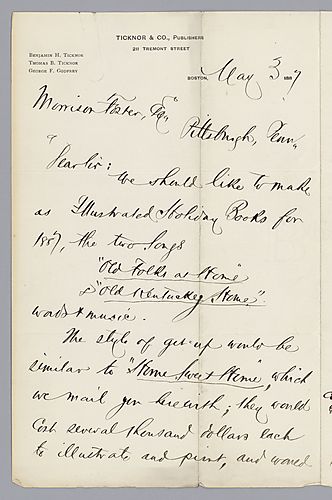 TICKNOR & CO., PUBLISHERS
211 TREMONT STREET
BENJAMIN H. TICKNOR
THOMAS B. TICKNOR
GEORGE F. GODFREY
BOSTON, May 3 1887
Morrison Foster, Esq
Pittsburgh, Penn.
Dear Sir:
We should like to make
as Illustrated Holiday Books for
1887, the two songs
"Old Folks at Home"
& "Old Kentucky Home".
words & music.
The style of get-up would be
similar to "Home Sweet Home", which
we mail you herewith; they would
cost several thousand dollars each
to illustrate and print, and would